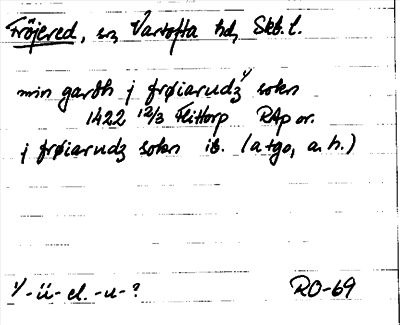 Fröjered, sn, Vartofta hd, Skb. l.
min gardh j frøiarudz 1/ sokn
1422 12/3 Flittorp RAp or.
j frøiarudz sokn ib. (atgo, a. h.)
1/ -ü- el. -u- ? RO-69